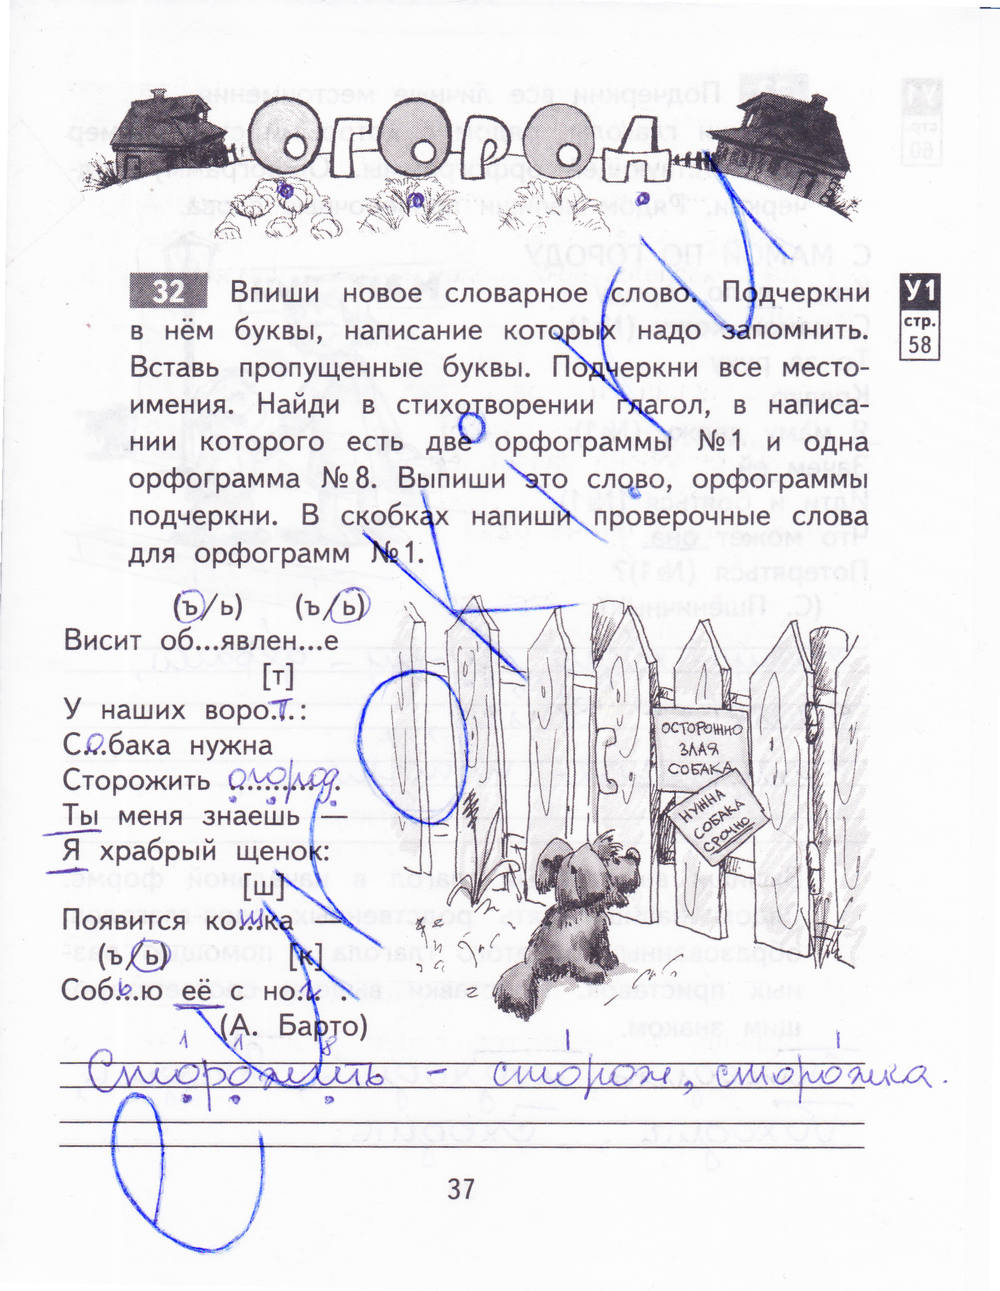 ОГОРОД
32 Впиши новое словарное слово. Подчеркни
в нём буквы, написание которых надо запомнить.
Вставь пропущенные буквы. Подчеркни все место-
имения. Найди в стихотворении глагол, в написа-
нии которого есть две орфограммы №1 и одна
орфограмма №8. Выпиши это слово, орфограммы
подчеркни. В скобках напиши проверочные слова
для орфограмм №1.
У1
стр.
58
(ъ/ь) (ъ/ь)
Висит об...явлен...е
[т]
У наших ворот.:
Собака нужна
Сторожить огород.
Ты меня знаешь —
Я храбрый щенок:
[ш]
Появится кошка
(ъ/ь) [к]
Собью её с но... .
(А. Барто)
ОСТОРОЖНО
ЗЛАЯ
СОБАКА
НУЖНА
СОБАКА
СРОЧНО
1 1 8
Сторожить – сторож, сторожка.
37